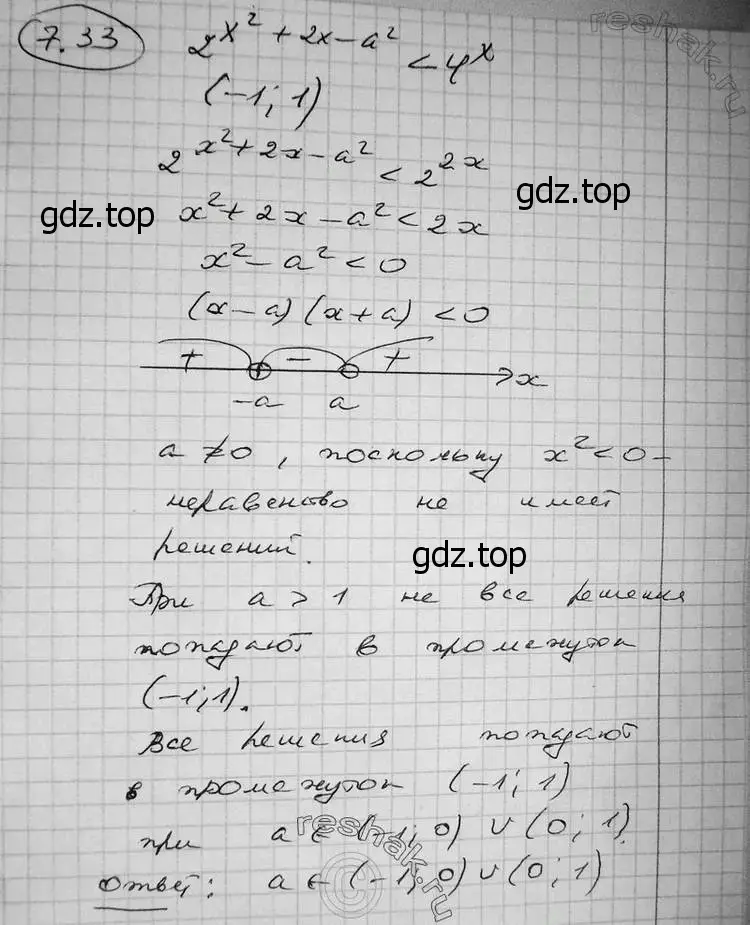 7.33 2^(x² + 2x – a²) < 4^x
(–1; 1)
2^(x² + 2x – a²) < 2^(2x)
x² + 2x – a² < 2x
x² – a² < 0
(x – a) (x + a) < 0
+ – + x
–a a
a ≠ 0, поскольку x² < 0 –
неравенство не имеет
решений.
При a > 1 не все решения
попадают в промежуток
(–1; 1).
Все решения попадают
в промежуток (–1; 1)
при a ∈ (–1; 0) ∪ (0; 1).
Ответ: a ∈ (–1; 0) ∪ (0; 1)
reshak.ru
gdz.top
gdz.top
gdz.top
reshak.ru